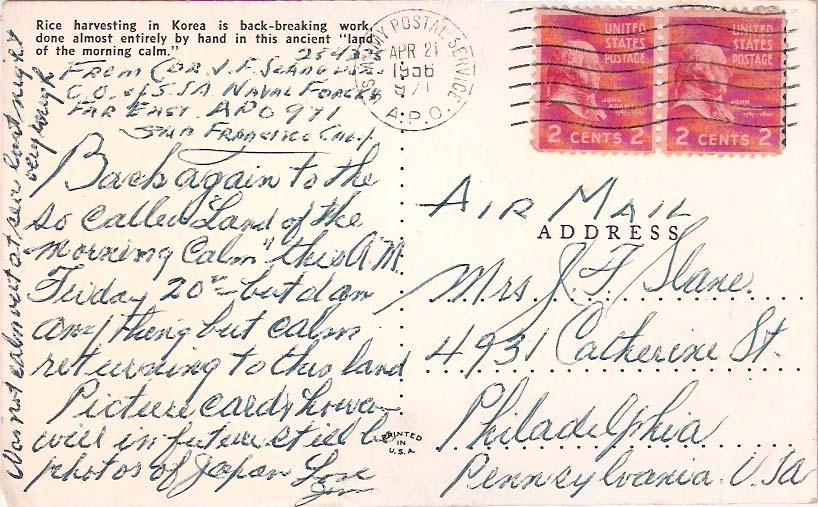 Rice harvesting in Korea is back-breaking work,
done almost entirely by hand in this ancient "land
of the morning calm."
From CDR. J. F. Slane
C.O. U.S.S.A. Naval Forces
Far East. APO 971
San Francisco Calif.
Back again to the
so called "Land of the
Morning Calm" this A.M.
Friday 20th - but I am
anything but calm
returning to this land
Picture cards
will in future still be
photos of Japan Love
Jim
Was not calm out at sea last night
very rough
ARMY POSTAL SERVICE
APR 21
1956
971
A.P.O.
UNITED
STATES
POSTAGE
JOHN ADAMS
2 CENTS 2
UNITED
STATES
POSTAGE
JOHN ADAMS
2 CENTS 2
Air Mail
ADDRESS
Mrs. J. F. Slane
4931 Catherine St.
Philadelphia
Pennsylvania. USA
PRINTED
IN
U.S.A.